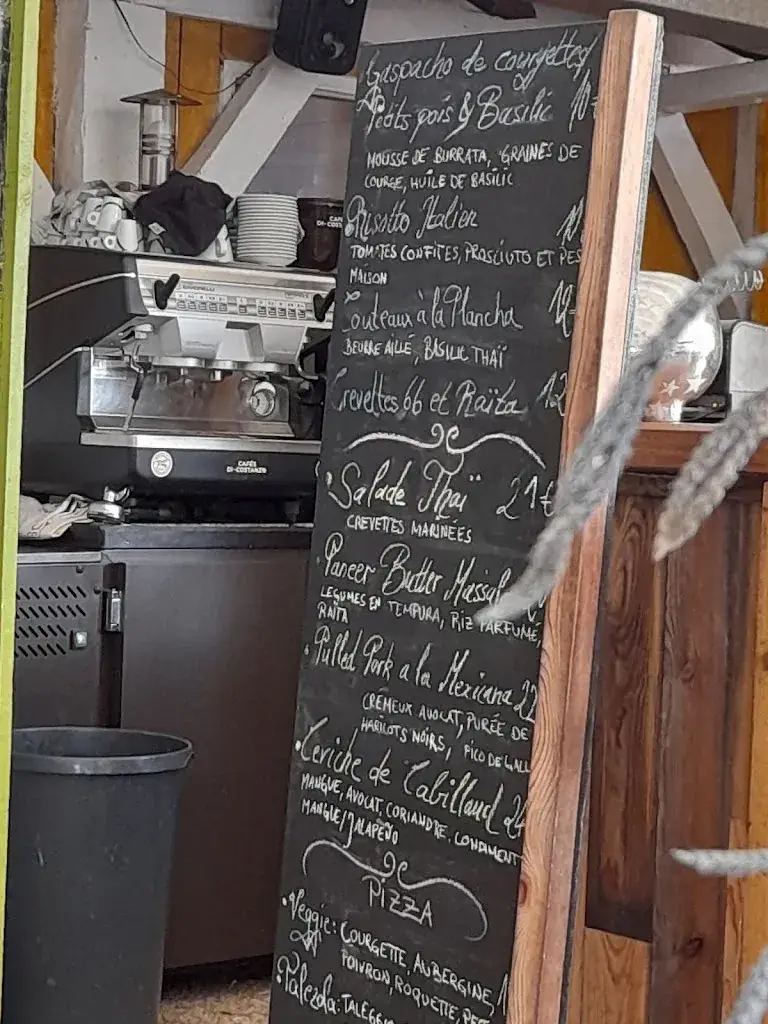 Gaspacho de courgettes
Petits pois & Basilic 10
MOUSSE DE BURRATA, GRAINES DE
COURGE, HUILE DE BASILIC
Risotto Italien
TOMATES CONFITES, PROSCIUTO ET PES
MAISON
Couteaux à la Plancha 12
BEURRE AILLÉ, BASILIC THAÏ
Crevettes 66 et Raïta 12
Salade Thaï 21€
CREVETTES MARINÉES
Paneer Butter Massal
LEGUMES EN TEMPURA, RIZ PARFUMÉ,
RAÏTA
Pulled Pork a la Mexicana 22
CRÉMEUX AVOCAT, PURÉE DE
HARICOTS NOIRS, PICO DE GALL
Ceviche de Cabillaud 24
MANGUE, AVOCAT, CORIANDRE, CONDIMENT
MANGUE/JALAPEÑO
PIZZA
Veggie: COURGETTE, AUBERGINE, 1
POIVRON, ROQUETTE, PES
TALEGGIO
CAFÉS
DI-COSTANZO